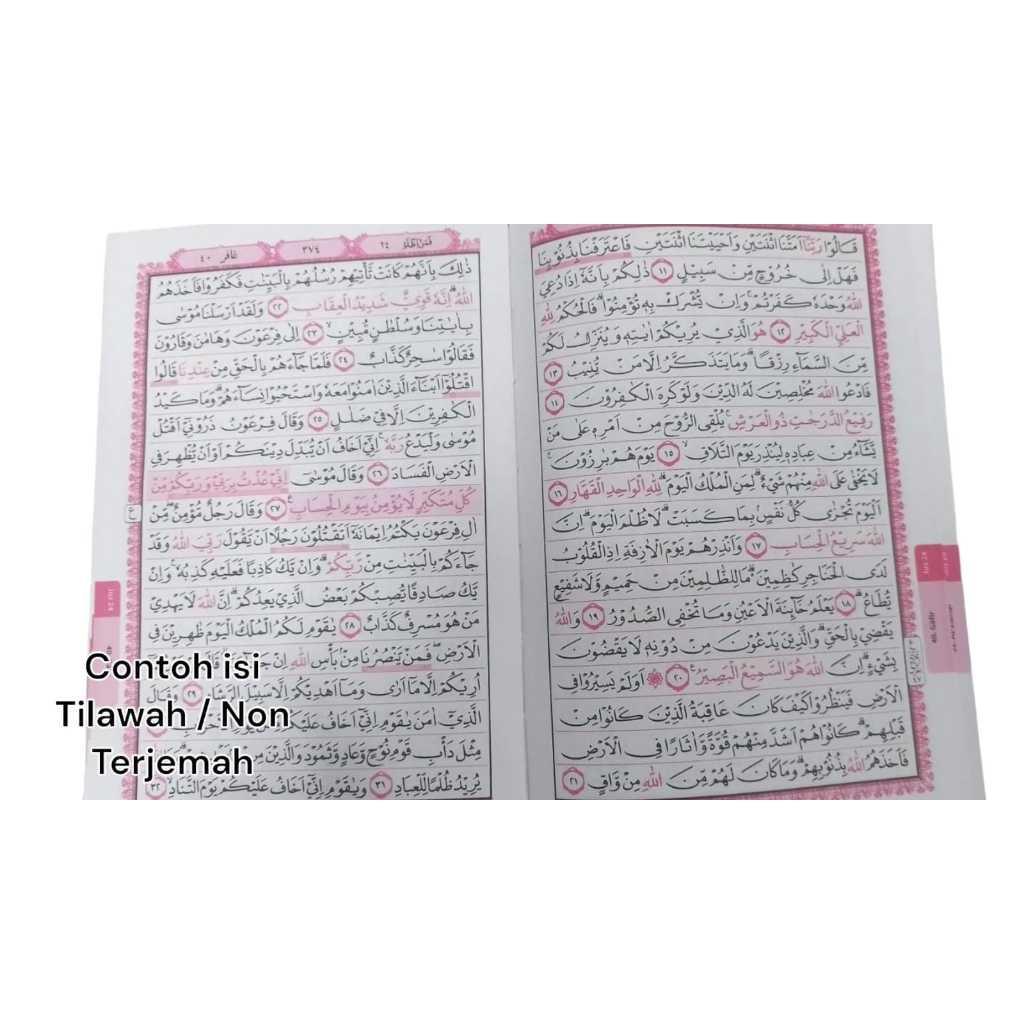 قَالُوْا رَبَّنَآ اَمَتَّنَا اثْنَتَيْنِ وَاَحْيَيْتَنَا اثْنَتَيْنِ فَاعْتَرَفْنَا بِذُنُوْبِنَا
فَهَلْ اِلٰى خُرُوْجٍ مِّنْ سَبِيْلٍ ١١ ذٰلِكُمْ بِاَنَّهٗٓ اِذَا دُعِيَ
اللّٰهُ وَحْدَهٗ كَفَرْتُمْۚ وَاِنْ يُّشْرَكْ بِهٖ تُؤْمِنُوْاۗ فَالْحُكْمُ لِلّٰهِ
الْعَلِيِّ الْكَبِيْرِ ١٢ هُوَ الَّذِيْ يُرِيْكُمْ اٰيٰتِهٖ وَيُنَزِّلُ لَكُمْ
مِّنَ السَّمَاۤءِ رِزْقًاۗ وَمَا يَتَذَكَّرُ اِلَّا مَنْ يُّنِيْبُ ١٣
فَادْعُوا اللّٰهَ مُخْلِصِيْنَ لَهُ الدِّيْنَ وَلَوْ كَرِهَ الْكٰفِرُوْنَ ١٤
رَفِيْعُ الدَّرَجٰتِ ذُو الْعَرْشِۚ يُلْقِى الرُّوْحَ مِنْ اَمْرِهٖ عَلٰى مَنْ
يَّشَاۤءُ مِنْ عِبَادِهٖ لِيُنْذِرَ يَوْمَ التَّلَاقِۙ ١٥ يَوْمَ هُمْ بَارِزُوْنَ ەۚ
لَا يَخْفٰى عَلَى اللّٰهِ مِنْهُمْ شَيْءٌۗ لِمَنِ الْمُلْكُ الْيَوْمَۗ لِلّٰهِ الْوَاحِدِ الْقَهَّارِ ١٦
اَلْيَوْمَ تُجْزٰى كُلُّ نَفْسٍۢ بِمَا كَسَبَتْۗ لَا ظُلْمَ الْيَوْمَۗ اِنَّ
اللّٰهَ سَرِيْعُ الْحِسَابِ ١٧ وَاَنْذِرْهُمْ يَوْمَ الْاٰزِفَةِ اِذِ الْقُلُوْبُ
لَدَى الْحَنَاجِرِ كٰظِمِيْنَۗ مَا لِلظّٰلِمِيْنَ مِنْ حَمِيْمٍ وَّلَا شَفِيْعٍ
يُّطَاعُۗ ١٨ يَعْلَمُ خَاۤىِٕنَةَ الْاَعْيُنِ وَمَا تُخْفِى الصُّدُوْرُ ١٩ وَاللّٰهُ
يَقْضِيْ بِالْحَقِّۗ وَالَّذِيْنَ يَدْعُوْنَ مِنْ دُوْنِهٖ لَا يَقْضُوْنَ
بِشَيْءٍۗ اِنَّ اللّٰهَ هُوَ السَّمِيْعُ الْبَصِيْرُ ٢٠ ۞ اَوَلَمْ يَسِيْرُوْا فِى
الْاَرْضِ فَيَنْظُرُوْا كَيْفَ كَانَ عَاقِبَةُ الَّذِيْنَ كَانُوْا مِنْ
قَبْلِهِمْۗ كَانُوْا هُمْ اَشَدَّ مِنْهُمْ قُوَّةً وَّاٰثَارًا فِى الْاَرْضِ
فَاَخَذَهُمُ اللّٰهُ بِذُنُوْبِهِمْۗ وَمَا كَانَ لَهُمْ مِّنَ اللّٰهِ مِنْ وَّاقٍ ٢١
40. Gafir
٢٤ ٣٧٤ غافر ٤٠
ذٰلِكَ بِاَنَّهُمْ كَانَتْ تَّأْتِيْهِمْ رُسُلُهُمْ بِالْبَيِّنٰتِ فَكَفَرُوْا فَاَخَذَهُمُ
اللّٰهُۗ اِنَّهٗ قَوِيٌّ شَدِيْدُ الْعِقَابِ ٢٢ وَلَقَدْ اَرْسَلْنَا مُوْسٰى
بِاٰيٰتِنَا وَسُلْطٰنٍ مُّبِيْنٍۙ ٢٣ اِلٰى فِرْعَوْنَ وَهَامٰنَ وَقَارُوْنَ
فَقَالُوْا سٰحِرٌ كَذَّابٌ ٢٤ فَلَمَّا جَاۤءَهُمْ بِالْحَقِّ مِنْ عِنْدِنَا قَالُوا
اقْتُلُوْٓا اَبْنَاۤءَ الَّذِيْنَ اٰمَنُوْا مَعَهٗ وَاسْتَحْيُوْا نِسَاۤءَهُمْۗ وَمَا كَيْدُ
الْكٰفِرِيْنَ اِلَّا فِيْ ضَلٰلٍ ٢٥ وَقَالَ فِرْعَوْنُ ذَرُوْنِيْٓ اَقْتُلْ
مُوْسٰى وَلْيَدْعُ رَبَّهٗۚ اِنِّيْٓ اَخَافُ اَنْ يُّبَدِّلَ دِيْنَكُمْ اَوْ اَنْ يُّظْهِرَ فِى
الْاَرْضِ الْفَسَادَ ٢٦ وَقَالَ مُوْسٰىٓ اِنِّيْ عُذْتُ بِرَبِّيْ وَرَبِّكُمْ مِّنْ
كُلِّ مُتَكَبِّرٍ لَّا يُؤْمِنُ بِيَوْمِ الْحِسَابِ ٢٧ وَقَالَ رَجُلٌ مُّؤْمِنٌۖ مِّنْ
اٰلِ فِرْعَوْنَ يَكْتُمُ اِيْمَانَهٗٓ اَتَقْتُلُوْنَ رَجُلًا اَنْ يَّقُوْلَ رَبِّيَ اللّٰهُ وَقَدْ
جَاۤءَكُمْ بِالْبَيِّنٰتِ مِنْ رَّبِّكُمْۗ وَاِنْ يَّكُ كَاذِبًا فَعَلَيْهِ كَذِبُهٗۚ وَاِنْ
يَّكُ صَادِقًا يُّصِبْكُمْ بَعْضُ الَّذِيْ يَعِدُكُمْۗ اِنَّ اللّٰهَ لَا يَهْدِيْ
مَنْ هُوَ مُسْرِفٌ كَذَّابٌ ٢٨ يٰقَوْمِ لَكُمُ الْمُلْكُ الْيَوْمَ ظٰهِرِيْنَ فِى
الْاَرْضِۖ فَمَنْ يَّنْصُرُنَا مِنْۢ بَأْسِ اللّٰهِ اِنْ
اُرِيْكُمْ اِلَّا مَآ اَرٰى وَمَآ اَهْدِيْكُمْ اِلَّا سَبِيْلَ الرَّشَادِ ٢٩ وَقَالَ
الَّذِيْٓ اٰمَنَ يٰقَوْمِ اِنِّيْٓ اَخَافُ عَلَيْكُمْ
مِثْلَ دَأْبِ قَوْمِ نُوْحٍ وَّعَادٍ وَّثَمُوْدَ وَالَّذِيْنَ مِنْۢ
يُرِيْدُ ظُلْمًا لِّلْعِبَادِ ٣١ وَيٰقَوْمِ اِنِّيْٓ اَخَافُ عَلَيْكُمْ يَوْمَ التَّنَادِۙ ٣٢
Contoh isi
Tilawah / Non
Terjemah